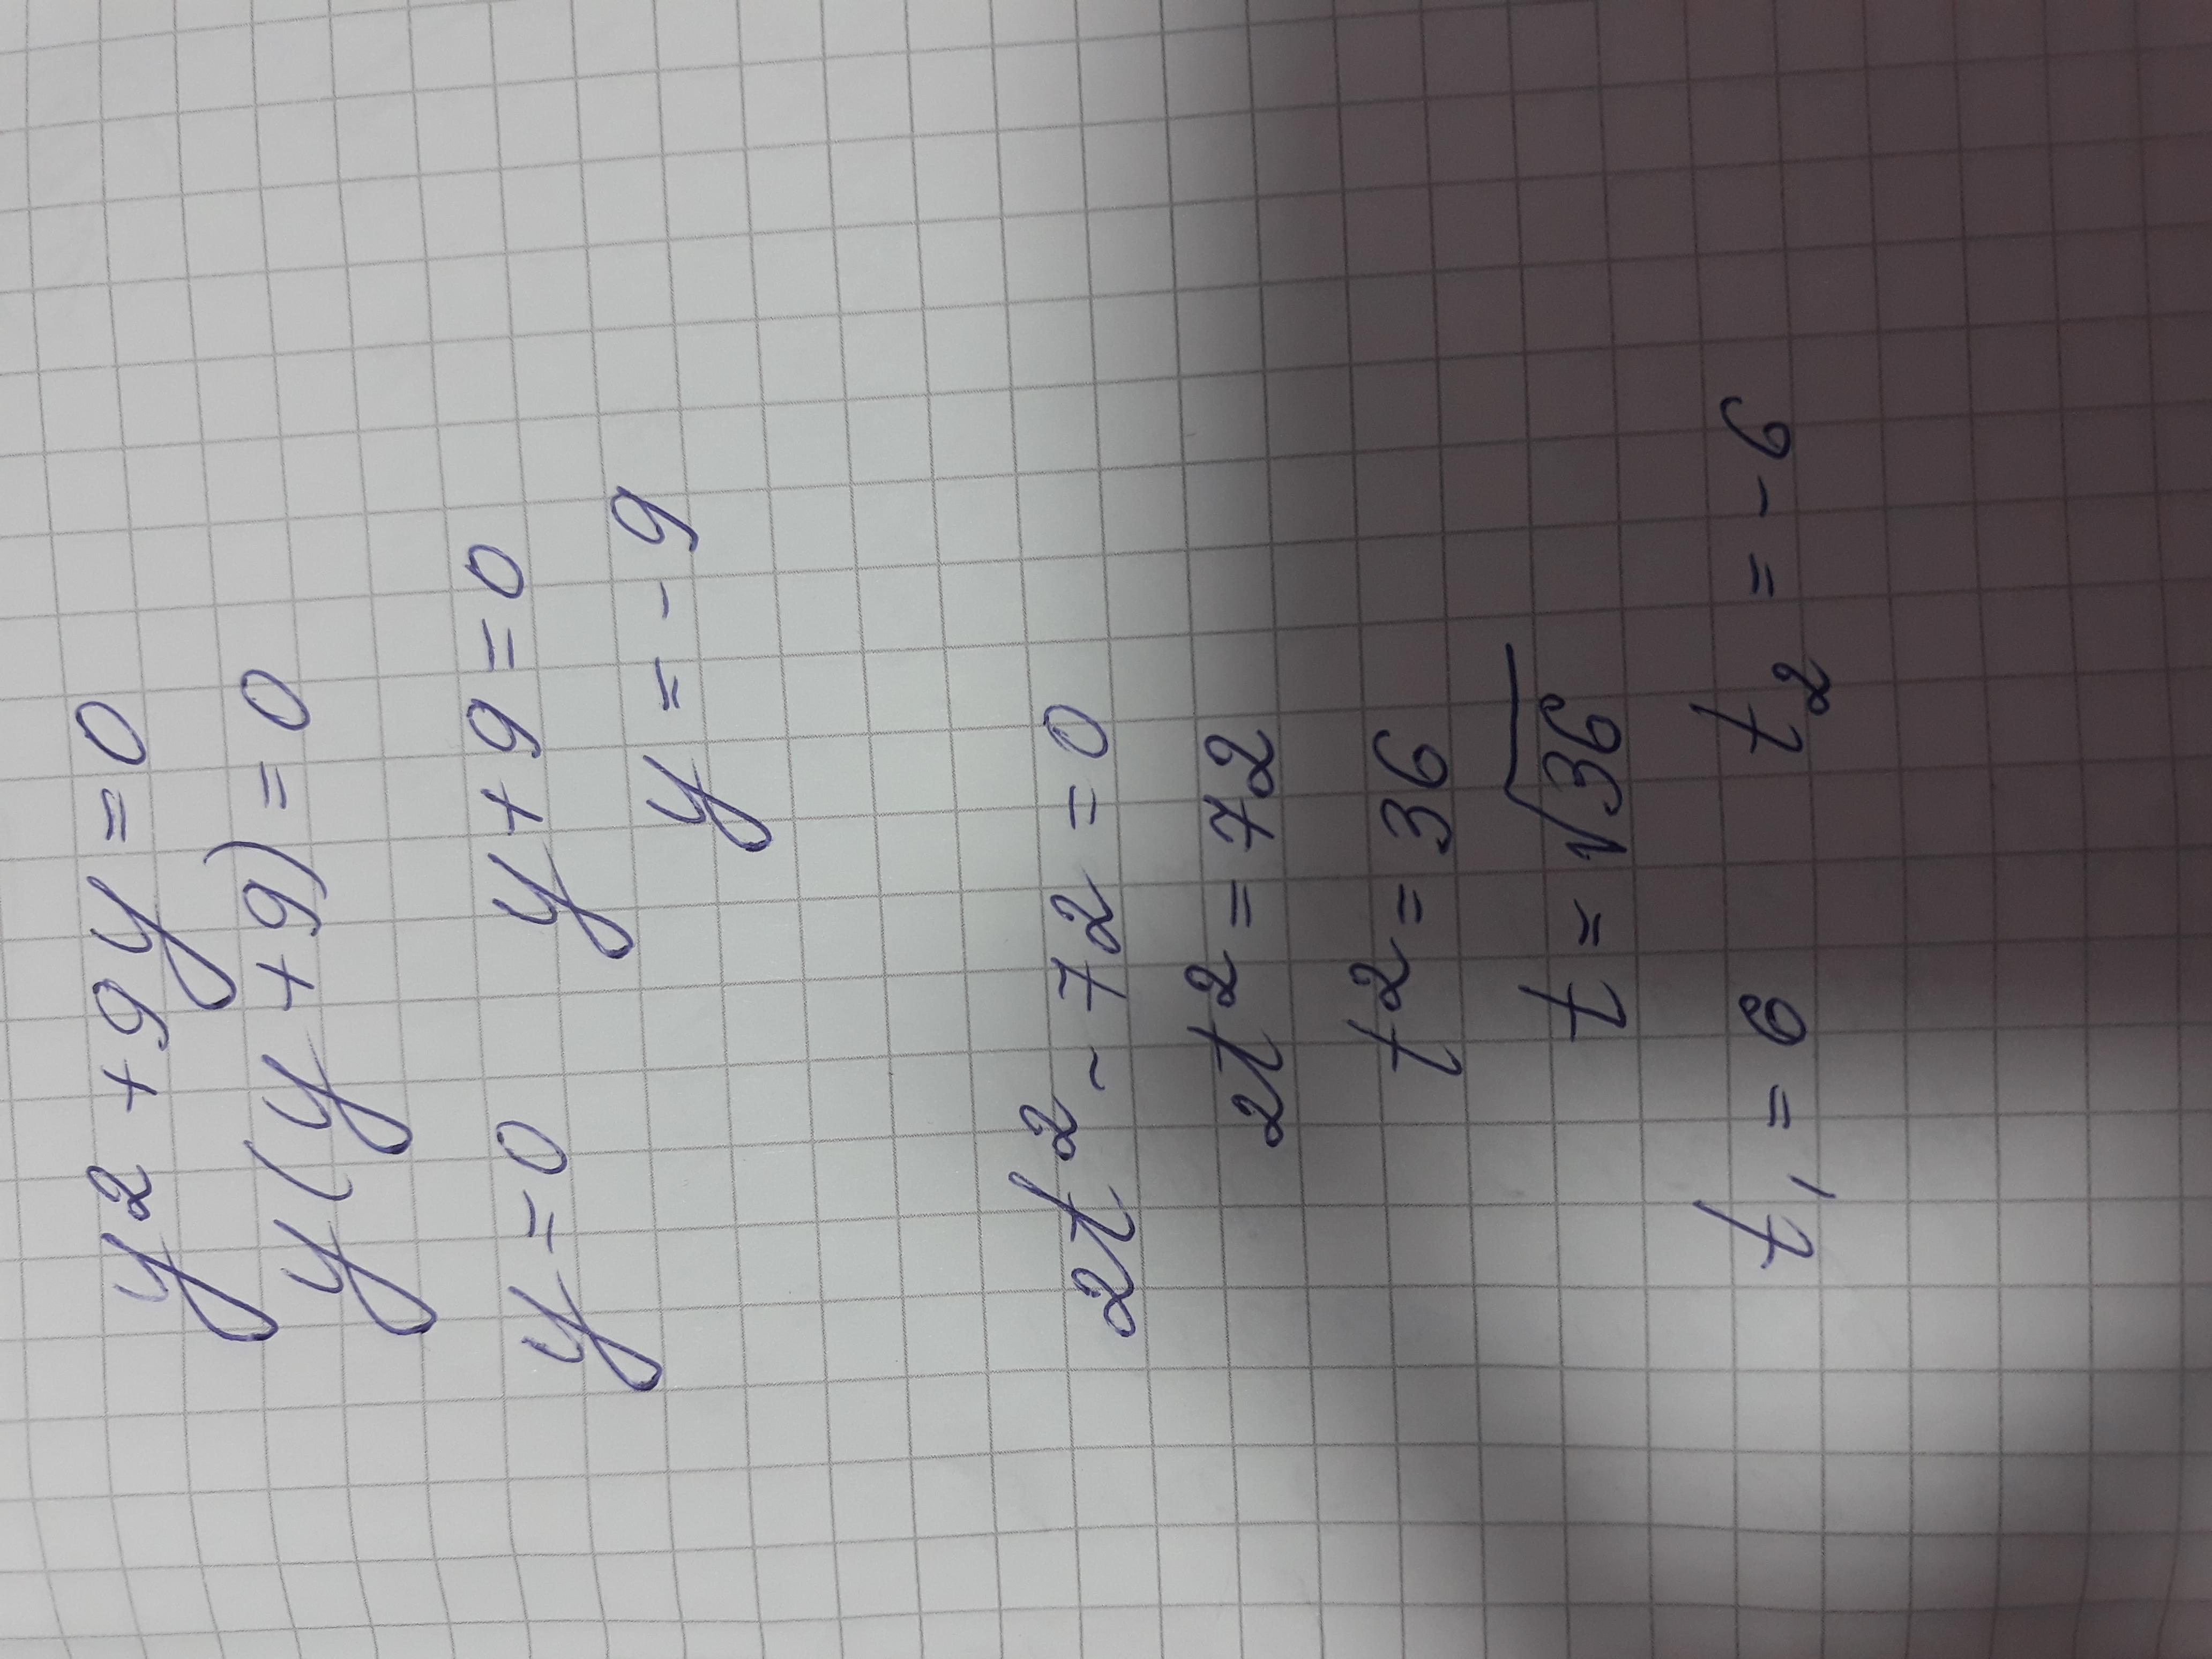 y² + 9y = 0
y(y + 9) = 0
y = 0 y + 9 = 0
y = - 9
2t² - 72 = 0
2t² = 72
t² = 36
t = √36
t₁ = 6 t₂ = - 6